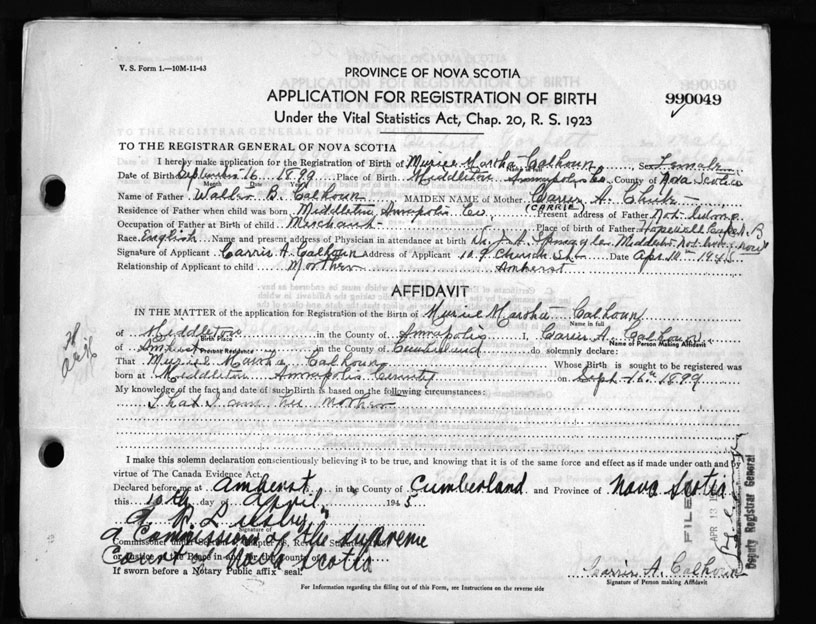 V. S. Form 1.—10M-11-43
PROVINCE OF NOVA SCOTIA
APPLICATION FOR REGISTRATION OF BIRTH
990049
Under the Vital Statistics Act, Chap. 20, R. S. 1923
TO THE REGISTRAR GENERAL OF NOVA SCOTIA
I hereby make application for the Registration of Birth of Muriel Martha Calhoun Sex Female
Name in full
Date of Birth September 16 1899 Place of Birth Middleton Annapolis Co County of Nova Scotia
Month Date Year
Name of Father Walter B. Calhoun MAIDEN NAME of Mother Carrie A.
(CARRIE)
Residence of Father when child was born Middleton Annapolis Co. Present address of Father Not living
Occupation of Father at Birth of child Merchant Place of Birth of Father Hopewell Cape N. B
Race English Name and present address of Physician in attendance at birth Dr. Middleton Not living now
Signature of Applicant Carrie A. Calhoun Address of Applicant 109 Church St. Date Apr 10th 1945
Relationship of Applicant to child Mother Amherst
AFFIDAVIT
IN THE MATTER of the application for Registration of the Birth of Muriel Martha Calhoun
Name in full
of Middleton in the County of Annapolis I, Carrie A. Calhoun
Birth Place Name of Person Making Affidavit
of Amherst in the County of Cumberland do solemnly declare:
Present Residence
That Muriel Martha Calhoun Whose Birth is sought to be registered was
born at Middleton Annapolis County on Sept 16th 1899
My knowledge of the fact and date of such Birth is based on the following circumstances:
That I am her mother
I make this solemn declaration conscientiously believing it to be true, and knowing that it is of the same force and effect as if made under oath and by
virtue of The Canada Evidence Act.
Declared before me at Amherst in the County of Cumberland and Province of Nova Scotia
this 10th day of April 1945
Signature of
A Commissioner of the Supreme
Court of Nova Scotia
If sworn before a Notary Public affix seal.
Carrie A. Calhoun
Signature of Person making Affidavit
For Information regarding the filling out of this Form, see Instructions on the reverse side
FILED
APR 13
Deputy Registrar General